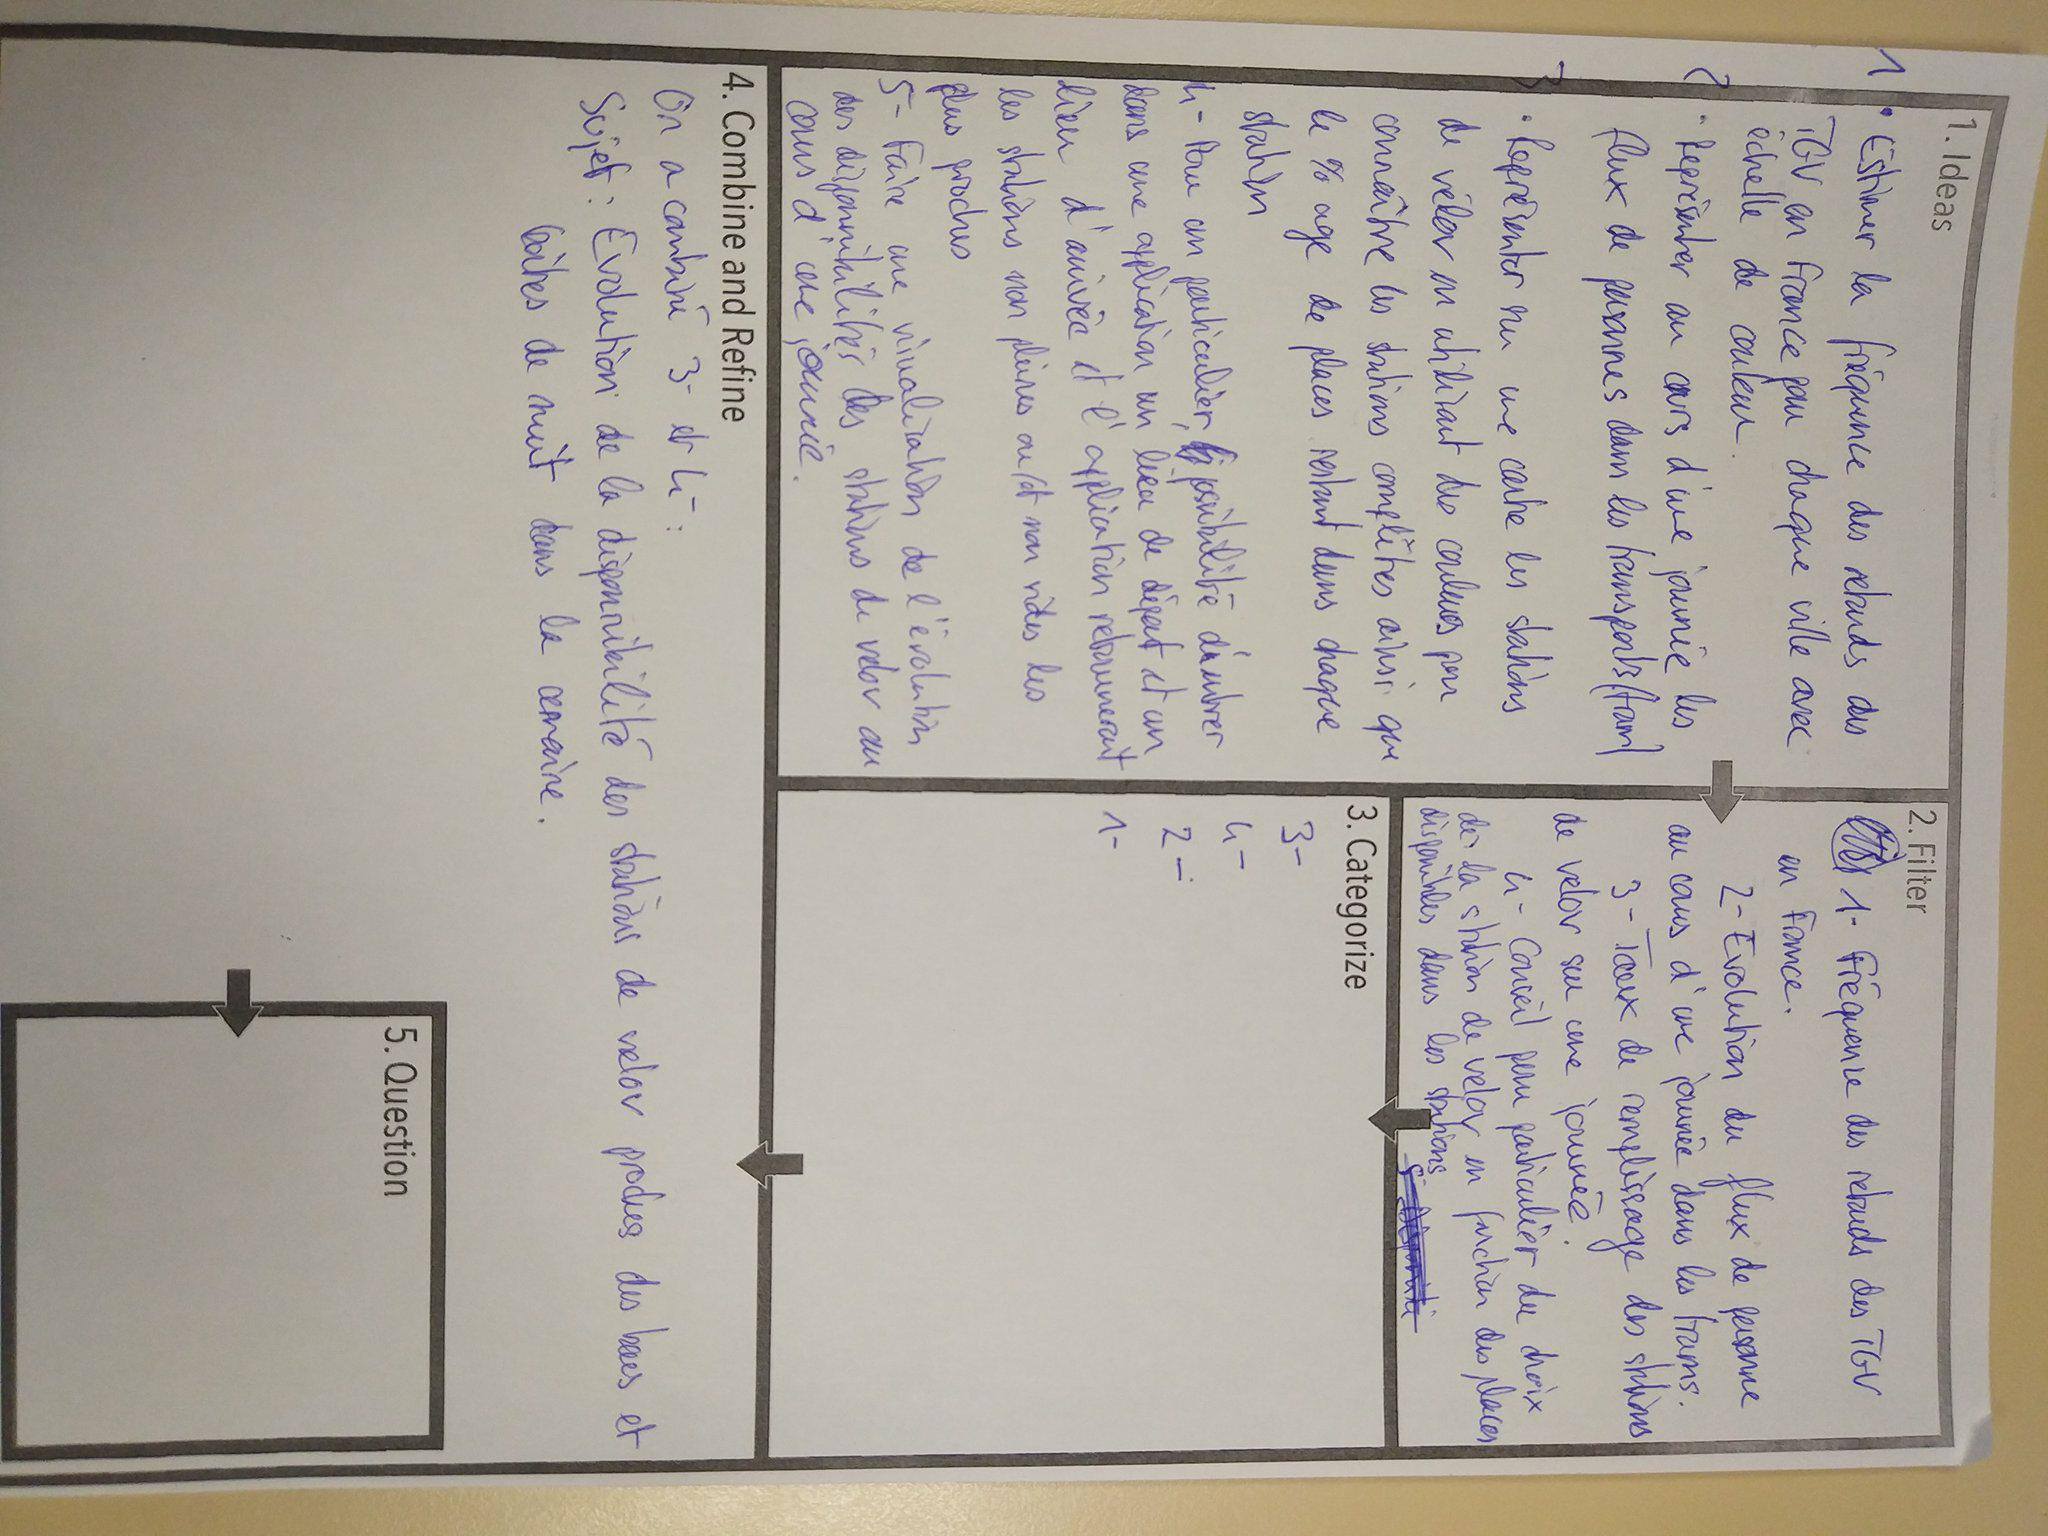 1. Ideas
1 • Estimer la fréquence des retards des
TGV en France pour chaque ville avec
échelle de couleur.
2 • Représenter au cours d'une journée les
flux de personnes dans les transports (tram)
3 • Représenter sur une carte les stations
de vélov en utilisant des couleurs pour
connaître les stations complètes ainsi que
le % age de places restant dans chaque
station
4- Pour un particulier, possibilité d'entrer
dans une application un lieu de départ et un
lieu d'arrivée et l'application retournerait
les stations non pleines ou/et non vides les
plus proches
5- Faire une visualisation de l'évolution
des disponibilités des stations de velov au
cours d'une journée.
2. Filter
1- Fréquence des retards des TGV
en France.
2- Evolution du flux de personne
au cours d'une journée dans les trams.
3- Taux de remplissage des stations
de velov sur une journée.
4- Conseil pour particulier du choix
de la station de velov en fonction des places
disponibles dans les stations
3. Categorize
3-
4-
2-
1-
4. Combine and Refine
On a combiné 3- et 4- :
Sujet : Evolution de la disponibilité des stations de velov proches des bars et
boîtes de nuit dans la semaine.
5. Question